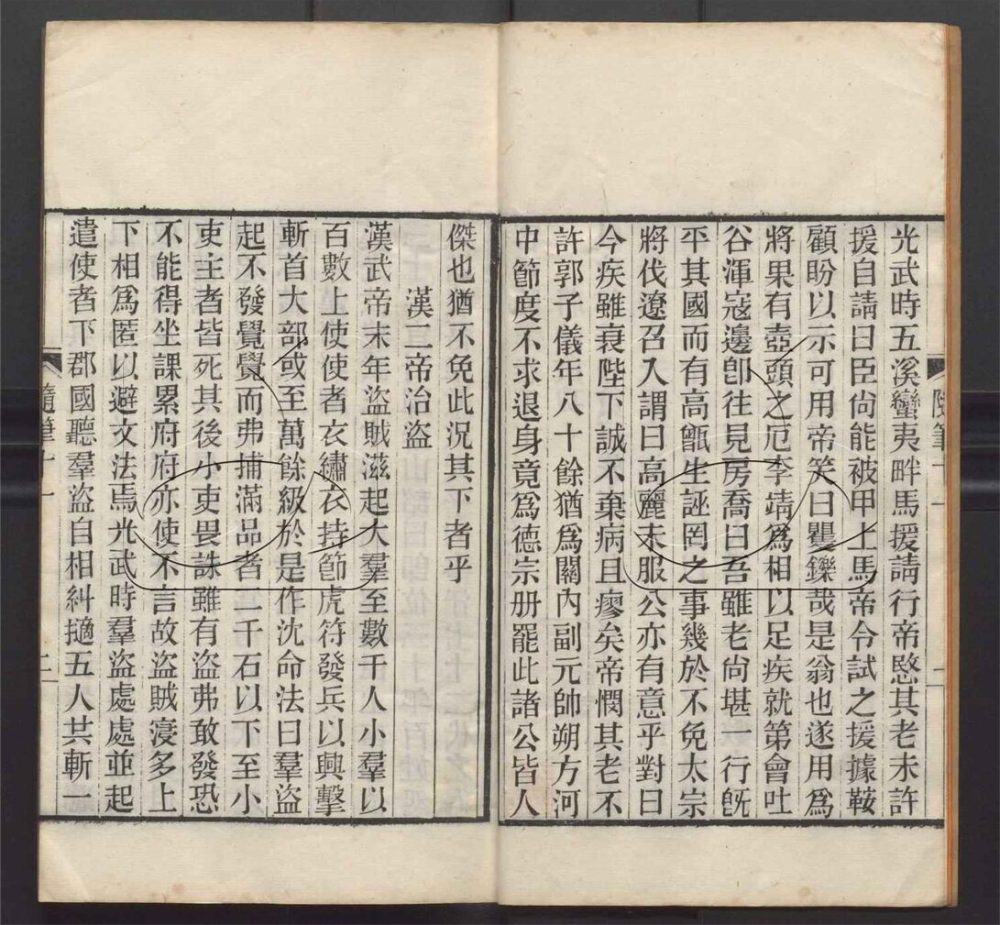 光武時五溪蠻夷畔馬援請行帝愍其老未許
援自請曰臣尙能被甲上馬帝令試之援據鞍
顧盼以示可用帝笑曰矍鑠哉是翁也遂用爲
將果有壺頭之厄李靖爲相以足疾就第會吐
谷渾寇邊卽往見房喬曰吾雖老尙堪一行旣
平其國而有高甑生誣罔之事幾於不免太宗
將伐遼召入謂曰高麗未服公亦有意乎對曰
今疾雖衰陛下誠不棄病且瘳矣帝憫其老不
許郭子儀年八十餘猶爲關內副元帥朔方河
中節度不求退身竟爲德宗册罷此諸公皆人
隨筆十一
傑也猶不免此況其下者乎
漢二帝治盜
漢武帝末年盜賊滋起大羣至數千人小羣以
百數上使使者衣繡衣持節虎符發兵以興擊
斬首大部或至萬餘級於是作沈命法曰羣盜
起不發覺覺而弗捕滿品者二千石以下至小
吏主者皆死其後小吏畏誅雖有盜弗敢發恐
不能得坐課累府府亦使不言故盜賊寖多上
下相爲匿以避文法焉光武時羣盜處處並起
遣使者下郡國聽羣盜自相糾擿五人共斬一
隨筆十一
二